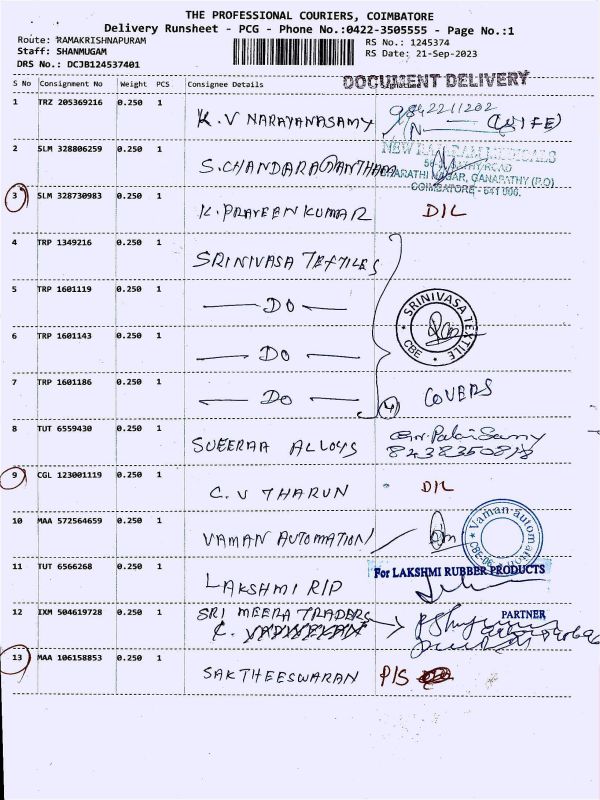 THE PROFESSIONAL COURIERS, COIMBATORE
Delivery Runsheet - PCG - Phone No.:0422-3505555 - Page No.:1
Route: RAMAKRISHNAPURAM
RS No.: 1245374
Staff: SHANMUGAM
RS Date: 21-Sep-2023
DRS No.: DCJB124537401
S No Consignment No Weight PCS Consignee Details Signature
DOCUMENT DELIVERY
1 TRZ 205369216 0.250 1 K.V NARAYANASAMY 9842211202
(WIFE)
2 SLM 328806259 0.250 1
COIMBATORE - 641 006.
3 SLM 328730983 0.250 1 K. PRAVEEN KUMAR D/L
4 TRP 1349216 0.250 1 SRINIVASA TEXTILES
5 TRP 1601119 0.250 1 — DO —
SRINIVASA TEXTILE
CBE
6 TRP 1601143 0.250 1 — DO —
7 TRP 1601186 0.250 1 — DO — 4 COVERS
8 TUT 6559430 0.250 1 SUEERAA ALLOYS
9 CGL 123001119 0.250 1 C. V THARUN D/L
10 MAA 572564659 0.250 1 VAMAN AUTOMATION
Vaman automation
CBE-06
11 TUT 6566268 0.250 1 LAKSHMI R/P
For LAKSHMI RUBBER PRODUCTS
PARTNER
12 IXM 504619728 0.250 1 SRI MEERA TRADERS
13 MAA 106158853 0.250 1 SAKTHEESWARAN P/S